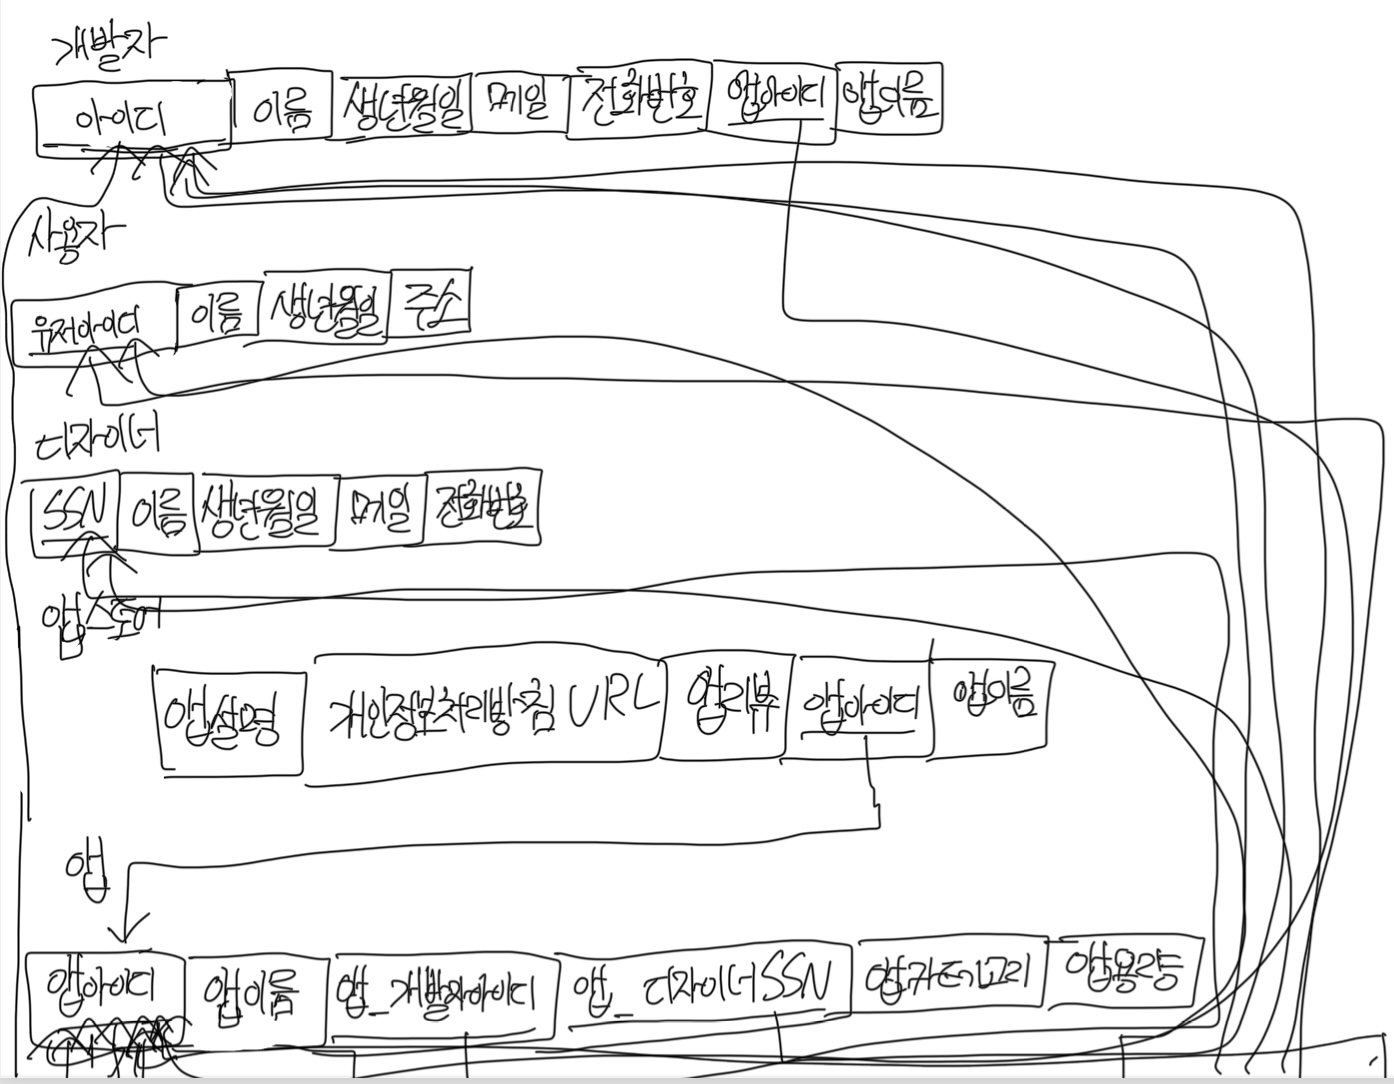 개발자
아이디 이름 생년월일 메일 전화번호 앱아이디 앱이름
사용자
유저아이디 이름 생년월일 주소
디자이너
SSN 이름 생년월일 메일 전화번호
앱스토어
앱설명 개인정보처리방침 URL 앱리뷰 앱아이디 앱이름
앱
앱아이디 앱이름 앱_개발자아이디 앱_디자이너SSN 앱카테고리 앱용량